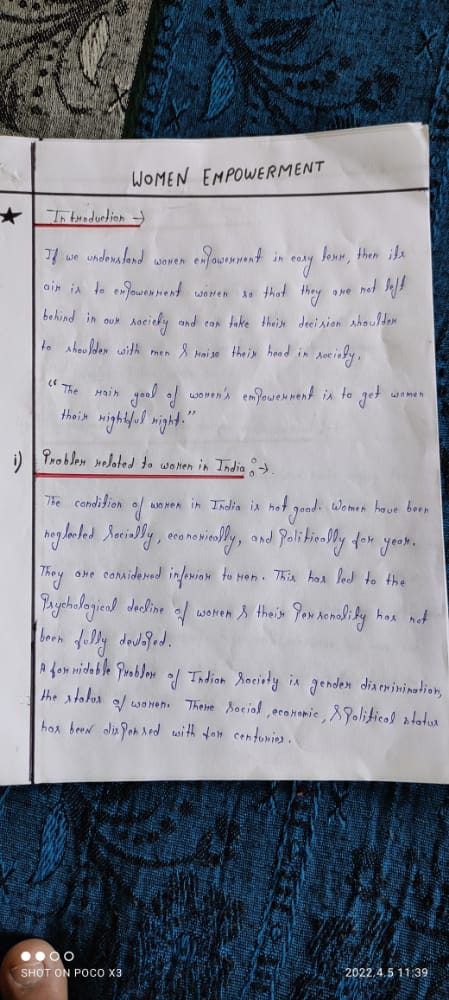 WOMEN EMPOWERMENT
★ Introduction →
If we understand women empowerment in easy term, then its
aim is to empowerment women so that they are not left
behind in our society and can take their decision shoulder
to shoulder with men & raise their head in society.
"The main goal of women's empowerment is to get women
their rightful right."
i) Problem related to women in India :→.
The condition of women in India is not good. Women have been
neglected socially, economically, and politically for year.
They are considered inferior to men. This has led to the
Psychological decline of women & their Personality has not
been fully devloped.
A formidable Problem of Indian Society is gender discrimination,
the status of women. There social, economic, & Political status
has been dispensed with for centuries.
SHOT ON POCO X3
2022.4.5 11:39